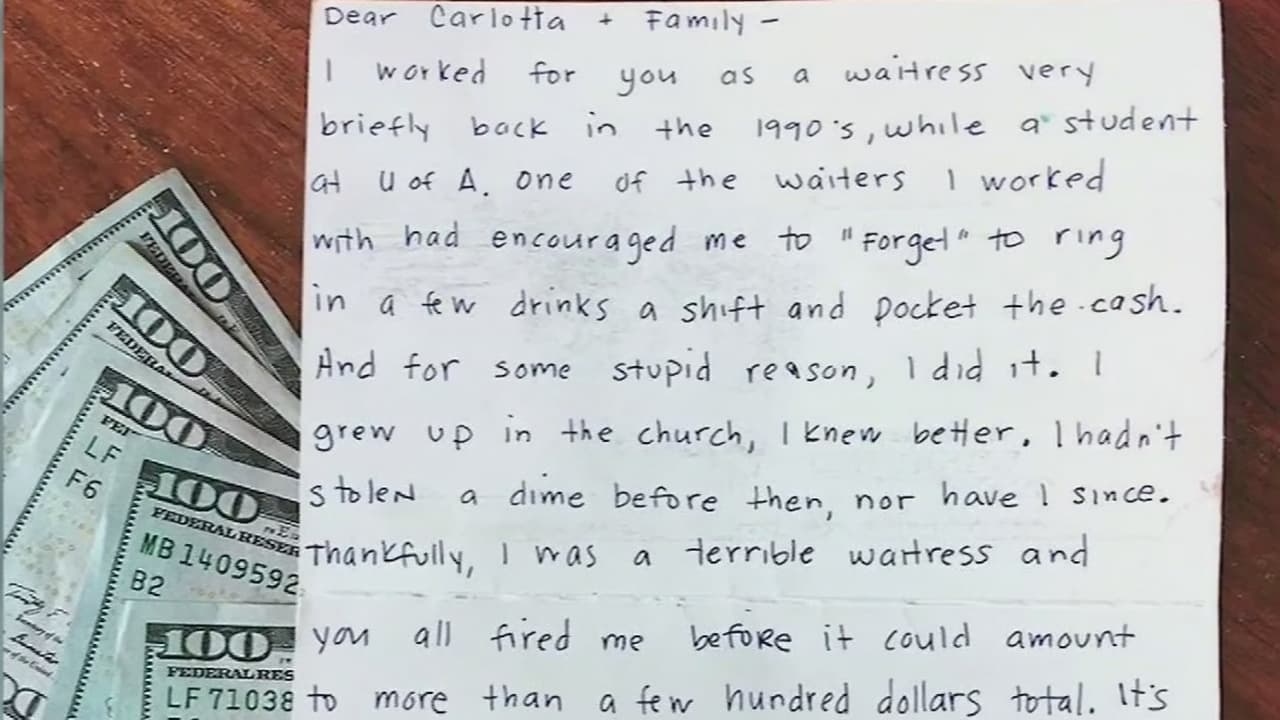 Dear Carlotta + Family -
I worked for you as a waitress very
briefly back in the 1990's, while a student
at U of A. One of the waiters I worked
with had encouraged me to "Forget" to ring
in a few drinks a shift and pocket the cash.
And for some stupid reason, I did it. I
grew up in the church, I knew better. I hadn't
stolen a dime before then, nor have I since.
Thankfully, I was a terrible waitress and
you all fired me before it could amount
to more than a few hundred dollars total. It's
100
100
FEDERAL
100
LF
F6
100
FEDERAL RESER
MB1409592
B2
100
FEDERAL RES
LF71038